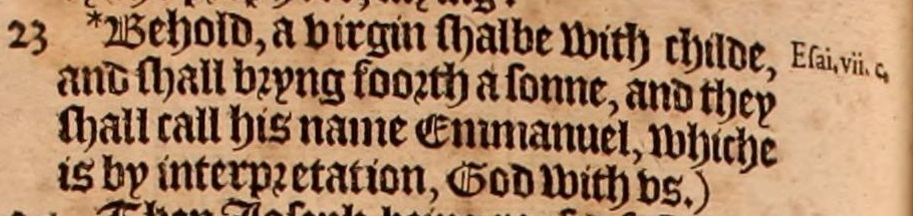 23 *Behold, a virgin ſhalbe with childe, Eſai, vii. c.
and ſhall bꝛyng fooꝛth a ſonne, and they
ſhall call his name Emmanuel, whiche
is by interpꝛetation, God with vs.)